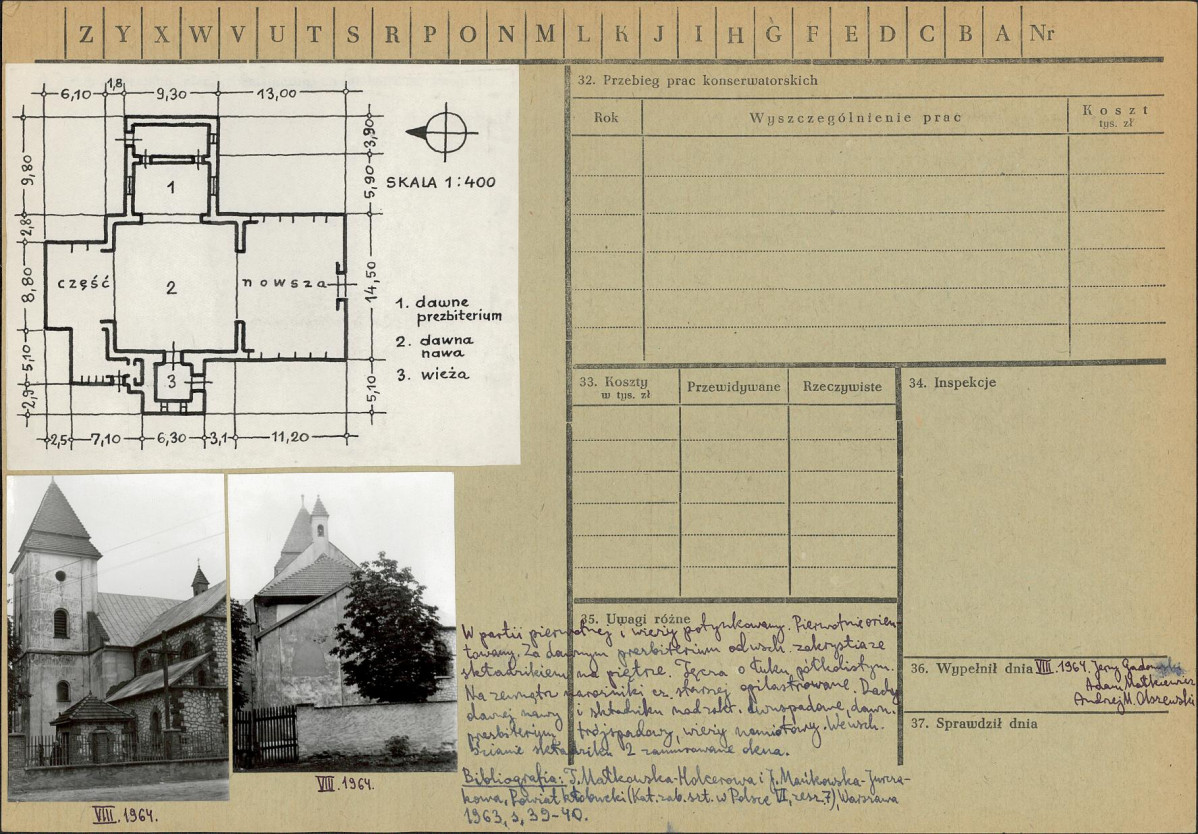 Z Y X W V U T S R P O N M L K J I H G F E D C B A Nr
6,10 1,8 9,30 13,00
9,80
2,8
8,80
5,10
2,9
3,90
5,90
14,50
5,10
SKALA 1:400
1
część 2 nowsza
3
1. dawne
prezbiterium
2. dawna
nawa
3. wieża
2,5 7,10 6,30 3,1 11,20
VIII.1964.
VIII.1964.
32. Przebieg prac konserwatorskich
Rok Wyszczególnienie prac Koszt
tys. zł
33. Koszty
w tys. zł
Przewidywane Rzeczywiste
34. Inspekcje
35. Uwagi różne
W partii pierwotnej i wieży potynkowany. Pierwotnie orien-
towany. Za dawnym prezbiterium od wsch. zakrystia ze
składzikiem na piętrze. Tęcza o łuku półkolistym.
Na zewnątrz narożniki cz. starszej opilastrowane. Dachy
dawnej nawy i składziku nad zakr. dwuspadowe, dawn.
prezbiterium trójspadowy, wieży namiotowy. We wsch.
ścianie składziku 2 zamurowane okna.
Bibliografia: T. Małkowska-Holcerowa i J. Mańkowska-Jurcza-
kowa, Powiat kłobucki (Kat. zab. szt. w Polsce VI, zesz. 7), Warszawa
1963, s. 39-40.
36. Wypełnił dnia VIII.1964. Jerzy
Adam Małkiewicz
Andrzej M. Olszewski
37. Sprawdził dnia